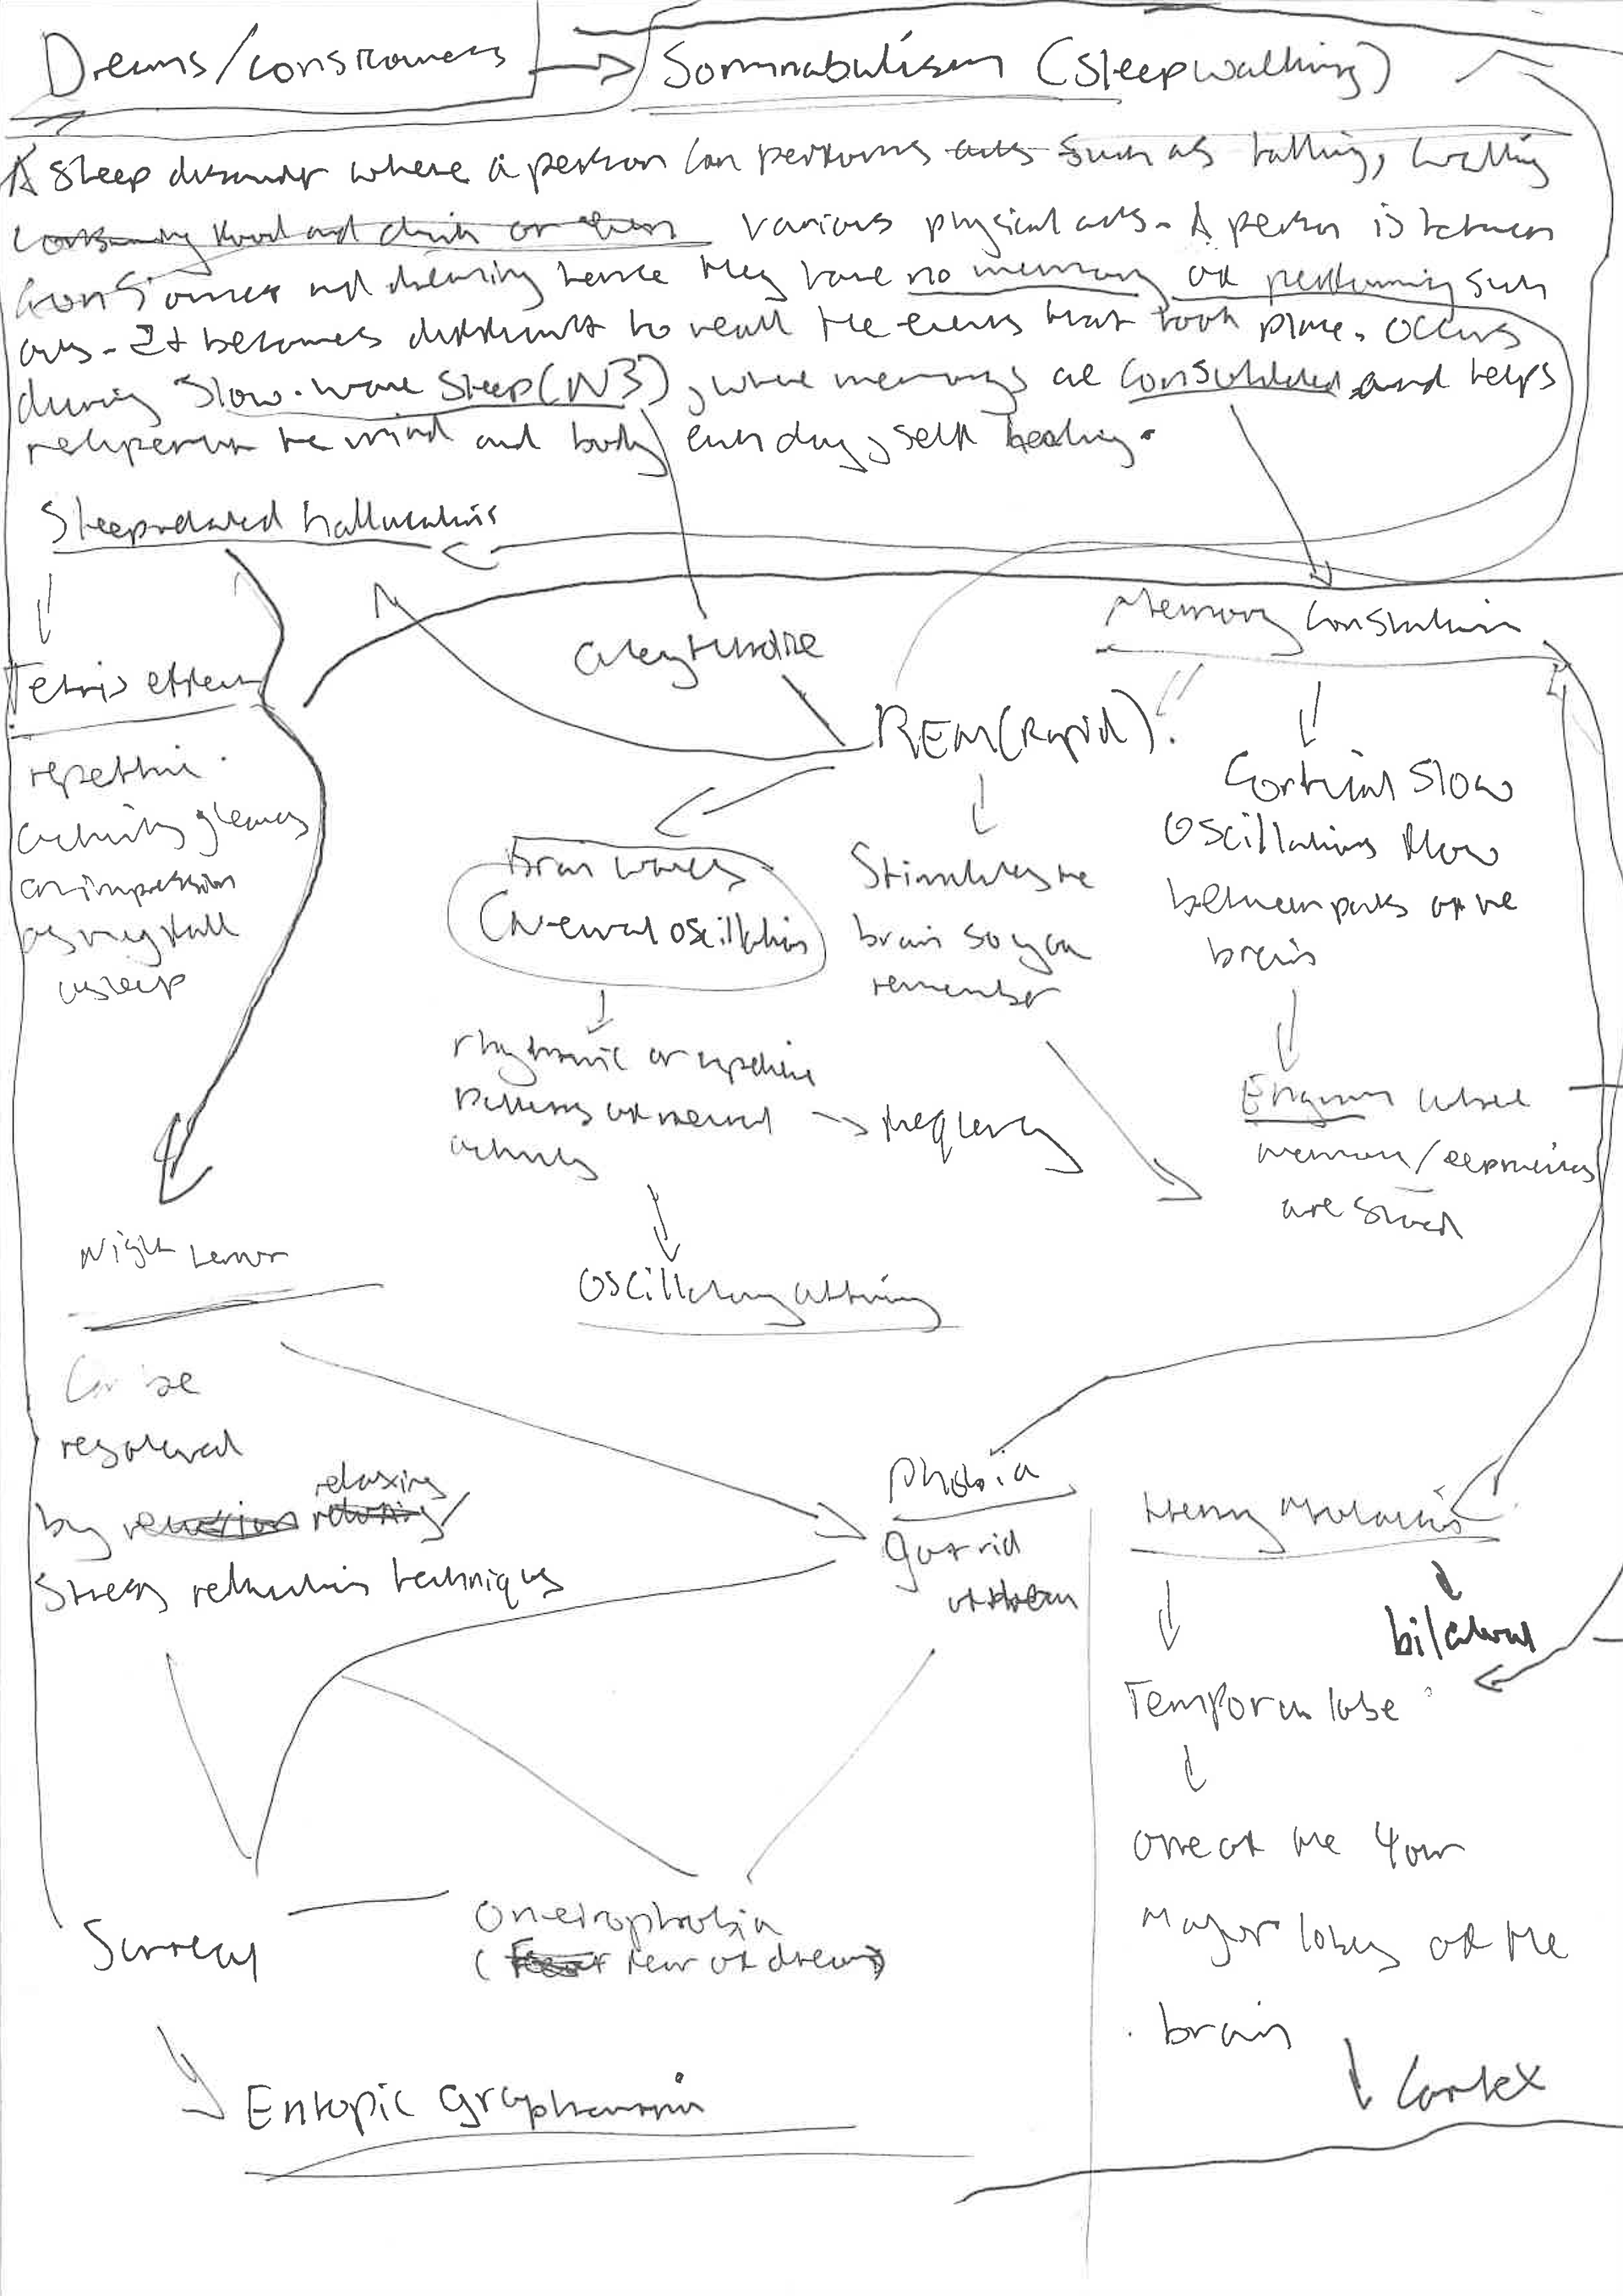 Dreams/consciousness
Somnabulism (Sleepwalking)
A sleep disorder where a person can performs acts such as talking, walking
consuming food and drink or even various physical acts. A person is between
and dreaming hence they have no memory of performing such
acts. It becomes difficult to recall the events that took place. Occurs
during Slow-wave Sleep (N3), where memories are consolidated and helps
the mind and body every day, self healing.
Sleep related hallucinations
Memory
Tetris effect
REM (Rapid).
repetitive
activity leaves
an impression
as they fall
asleep
Brain waves
(Neural oscillation
Stimulates the
brain so you
remember
Cortical Slow
Oscillations flow
between parts of the
brain
rhythmic or repetitive
patterns of neural → frequency
activity
Engram where
memory/
are stored
Night terror
Can be
resolved
by relaxing/
Stress reduction techniques
Phobia
get rid
of them
Henry Molaison
bilateral
Temporal lobe
one of the four
major lobes of the
brain
Cortex
Surreal
Oneirophobia
(fear of dreams)
Entopic graphomania